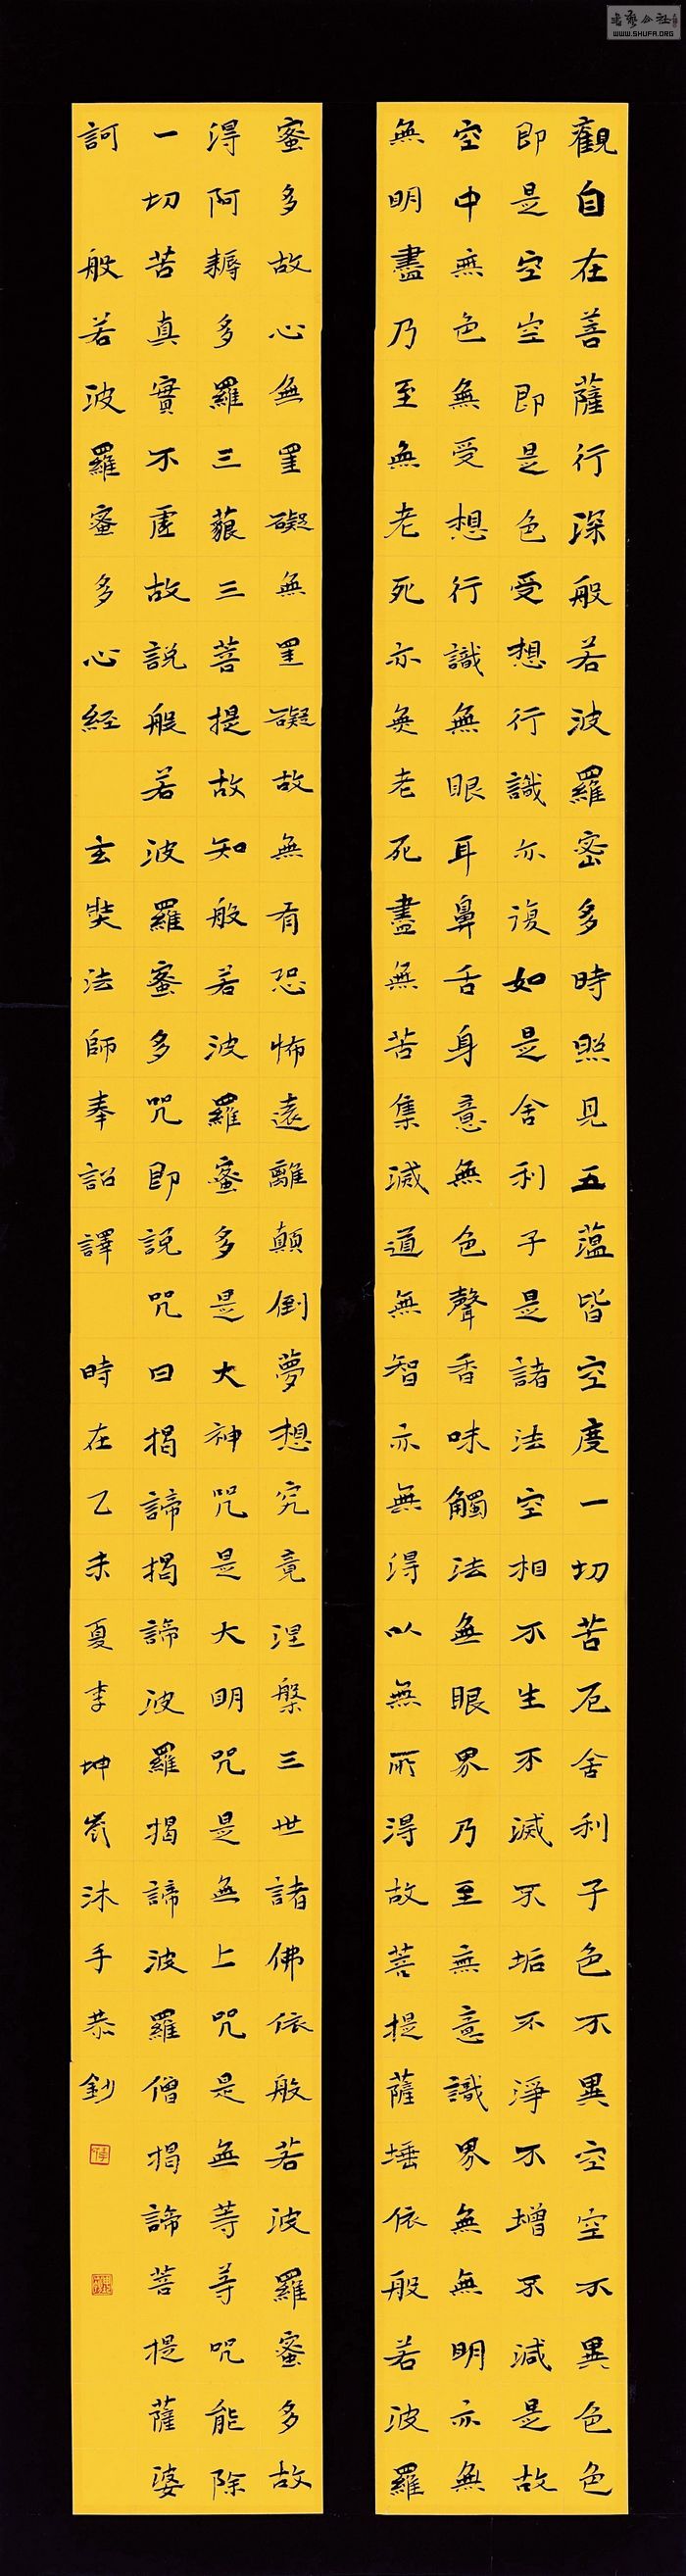 觀自在菩薩行深般若波羅密多時照見五蘊皆空度一切苦厄舍利子色不異空空不異色色
即是空空即是色受想行識亦復如是舍利子是諸法空相不生不滅不垢不淨不增不減是故
空中無色無受想行識無眼耳鼻舌身意無色聲香味觸法無眼界乃至無意識界無無明亦無
無明盡乃至無老死亦無老死盡無苦集滅道無智亦無得以無所得故菩提薩埵依般若波羅
蜜多故心無罣礙無罣礙故無有恐怖遠離顛倒夢想究竟涅槃三世諸佛依般若波羅蜜多故
得阿耨多羅三藐三菩提故知般若波羅蜜多是大神咒是大明咒是無上咒是無等等咒能除
一切苦真實不虛故說般若波羅蜜多咒即說咒曰揭諦揭諦波羅揭諦波羅僧揭諦菩提薩婆
訶 般若波羅蜜多心経 玄奘法師奉詔譯 時在乙未夏李坤沐手恭鈔
書藝公社
WWW.SHUFA.ORG